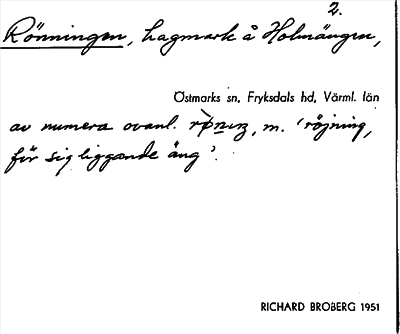 2.
Rönningen, hagmark å Holmängen,
Östmarks sn, Fryksdals hd, Värml. län
av numera ovanl. m. 'röjning,
för sig liggande äng'.
RICHARD BROBERG 1951